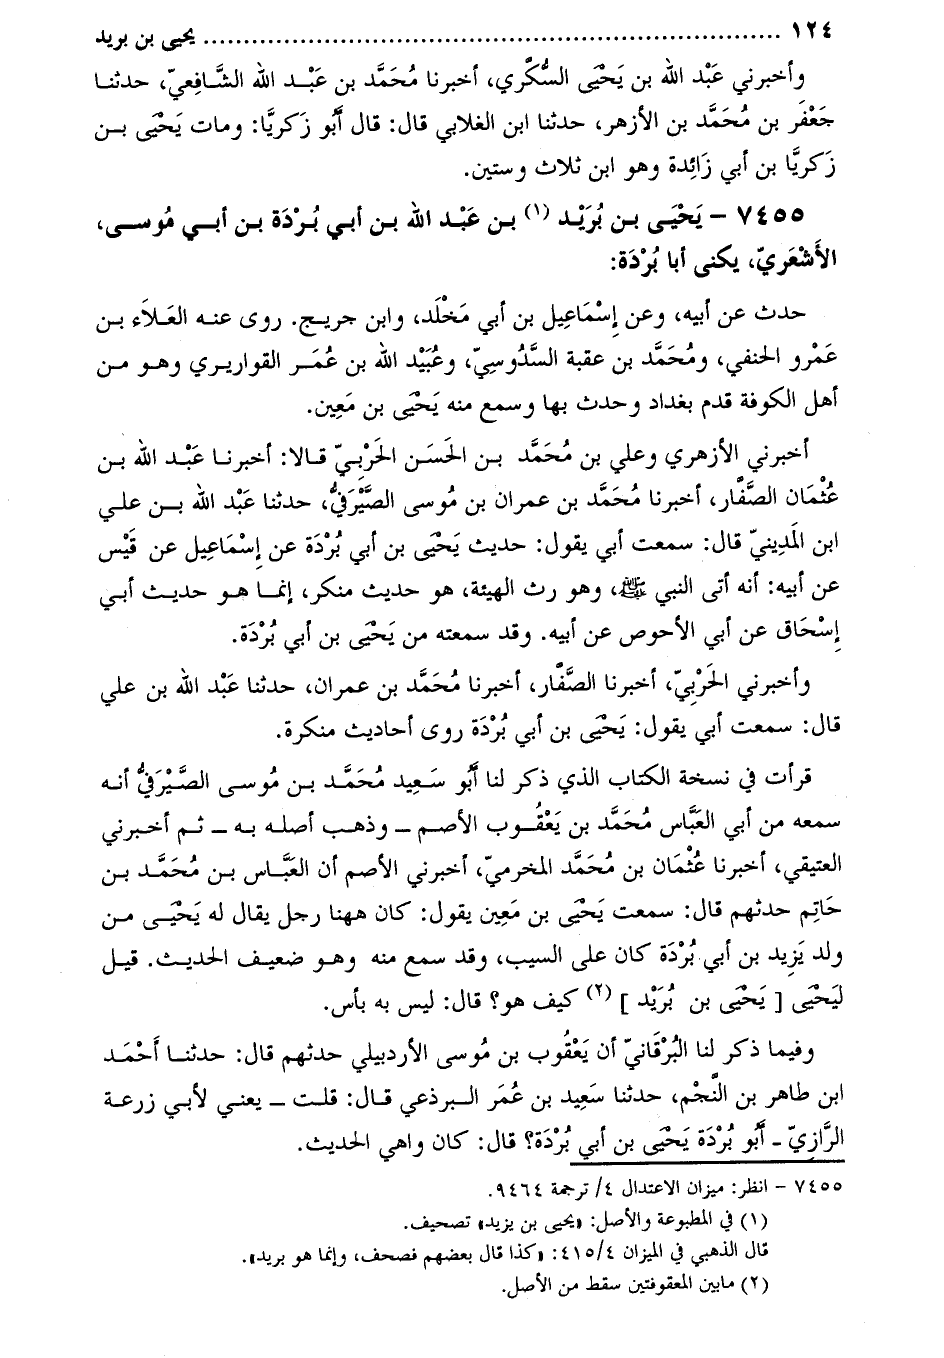 ١٢٤ ........................................................................ يحيى بن بريد
وأخبرني عَبْد الله بن يَحْيَى السُّكَّري، أخبرنا مُحَمَّد بن عَبْد الله الشَّافِعيّ، حدثنا
جَعْفَر بن مُحَمَّد بن الأزهر، حدثنا ابن الغلابي قال: قال أَبُو زَكريَّا: ومات يَحْيَى بن
زَكريَّا بن أبي زَائِدة وهو ابن ثلاث وستين.
٧٤٥٥ - يَحْيَى بن بُرَيْد (١) بن عَبْد الله بن أبي بُرْدَة بن أبي مُوسى،
الأَشْعَريّ، يكنى أبا بُرْدَة:
حدث عن أبيه، وعن إِسْمَاعِيل بن أبي مَخْلَد، وابن جريج. روى عنه العَلاَء بن
عَمْرو الحنفي، ومُحَمَّد بن عقبة السَّدُوسيّ، وعُبَيْد الله بن عُمَر القواريري وهو من
أهل الكوفة قدم بغداد وحدث بها وسمع منه يَحْيَى بن مَعِين.
أخبرني الأزهري وعلي بن مُحَمَّد بن الحَسَن الحَرْبيّ قالا: أخبرنا عَبْد الله بن
عُثْمَان الصَّفَّار، أخبرنا مُحَمَّد بن عمران بن مُوسى الصَّيْرَفيُّ، حدثنا عَبْد الله بن علي
ابن المَدِينيّ قال: سمعت أبي يقول: حديث يَحْيَى بن أبي بُرْدَة عن إِسْمَاعِيل عن قَيْس
عن أبيه: أنه أتى النبي ﷺ، وهو رث الهيئة، هو حديث منكر، إنما هو حديث أبي
إِسْحَاق عن أبي الأحوص عن أبيه. وقد سمعته من يَحْيَى بن أبي بُرْدَة.
وأخبرني الحَرْبيّ، أخبرنا الصَّفَّار، أخبرنا مُحَمَّد بن عمران، حدثنا عَبْد الله بن علي
قال: سمعت أبي يقول: يَحْيَى بن أبي بُرْدَة روى أحاديث منكرة.
قرأت في نسخة الكتاب الذي ذكر لنا أَبُو سَعِيد مُحَمَّد بن مُوسى الصَّيْرَفيُّ أنه
سمعه من أبي العَبَّاس مُحَمَّد بن يَعْقُوب الأصم ــ وذهب أصله به ــ ثم أخبرني
العتيقي، أخبرنا عُثْمَان بن مُحَمَّد المخرميّ، أخبرني الأصم أن العَبَّاس بن مُحَمَّد بن
حَاتِم حدثهم قال: سمعت يَحْيَى بن مَعِين يقول: كان ههنا رجل يقال له يَحْيَى من
ولد يَزِيد بن أبي بُرْدَة كان على السيب، وقد سمع منه وهو ضعيف الحديث. قيل
ليَحْيَى [ يَحْيَى بن بُرَيْد ] (٢) كيف هو؟ قال: ليس به بأس.
وفيما ذكر لنا البُرْقَانيّ أن يَعْقُوب بن مُوسى الأردبيلي حدثهم قال: حدثنا أَحْمَد
ابن طاهر بن النَّجْم، حدثنا سَعِيد بن عُمَر البرذعي قال: قلت ــ يعني لأبي زرعة
الرَّازيّ ــ أَبُو بُرْدَة يَحْيَى بن أبي بُرْدَة؟ قال: كان واهي الحديث.
٧٤٥٥ - انظر: ميزان الاعتدال ٤/ ترجمة ٩٤٦٤.
(١) في المطبوعة والأصل: «يحيى بن يزيد» تصحيف.
قال الذهبي في الميزان ٤١٥/٤: «كذا قال بعضهم فصحف، وإنما هو بريد».
(٢) مابين المعقوفتين سقط من الأصل.